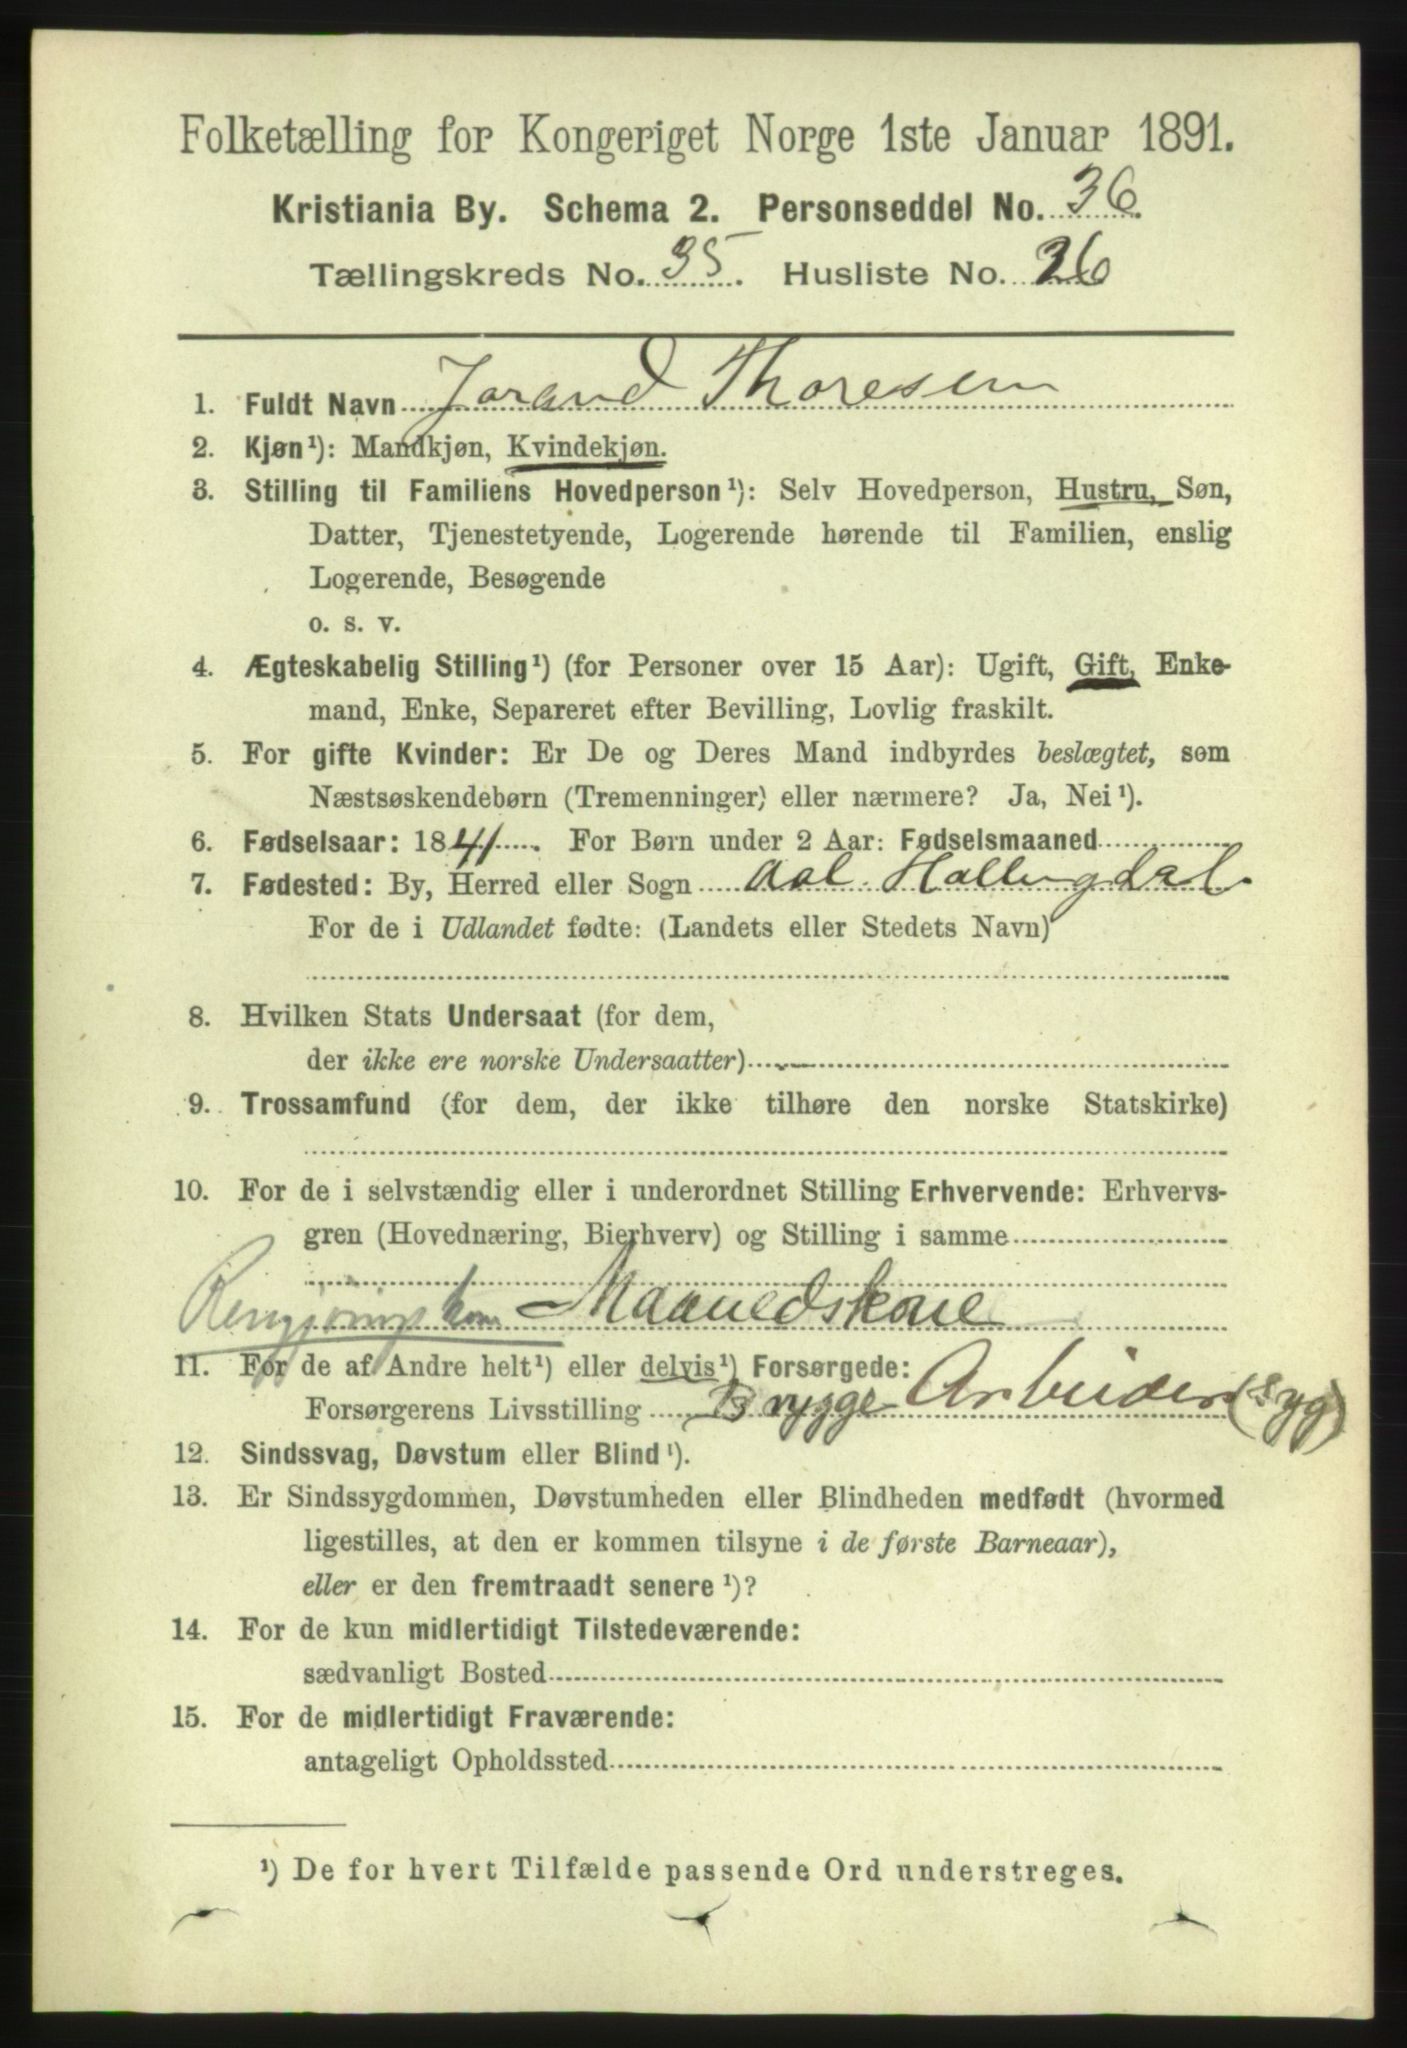 Folketælling for Kongeriget Norge 1ste Januar 1891.
Kristiania By. Schema 2. Personseddel No. 36.
Tællingskreds No. 35. Husliste No. 26
1. Fuldt Navn Jorand Thoresen
2. Kjøn¹): Mandkjøn, Kvindekjøn.
3. Stilling til Familiens Hovedperson¹): Selv Hovedperson, Hustru, Søn,
Datter, Tjenestetyende, Logerende hørende til Familien, enslig
Logerende, Besøgende
o. s. v.
4. Ægteskabelig Stilling¹) (for Personer over 15 Aar): Ugift, Gift, Enke-
mand, Enke, Separeret efter Bevilling, Lovlig fraskilt.
5. For gifte Kvinder: Er De og Deres Mand indbyrdes beslægtet, som
Næstsøskendebørn (Tremenninger) eller nærmere? Ja, Nei¹).
6. Fødselsaar: 1841. For Børn under 2 Aar: Fødselsmaaned
7. Fødested: By, Herred eller Sogn Aal. Hallingdal.
For de i Udlandet fødte: (Landets eller Stedets Navn)
8. Hvilken Stats Undersaat (for dem,
der ikke ere norske Undersaatter)
9. Trossamfund (for dem, der ikke tilhøre den norske Statskirke)
10. For de i selvstændig eller i underordnet Stilling Erhvervende: Erhvervs-
gren (Hovednæring, Bierhverv) og Stilling i samme
Rengjøringskone Maanedskone
11. For de af Andre helt¹) eller delvis¹) Forsørgede:
Forsørgerens Livsstilling Brygge Arbeider (syg)
12. Sindssvag, Døvstum eller Blind¹).
13. Er Sindssygdommen, Døvstumheden eller Blindheden medfødt (hvormed
ligestilles, at den er kommen tilsyne i de første Barneaar),
eller er den fremtraadt senere¹)?
14. For de kun midlertidigt Tilstedeværende:
sædvanligt Bosted
15. For de midlertidigt Fraværende:
antageligt Opholdssted
¹) De for hvert Tilfælde passende Ord understreges.